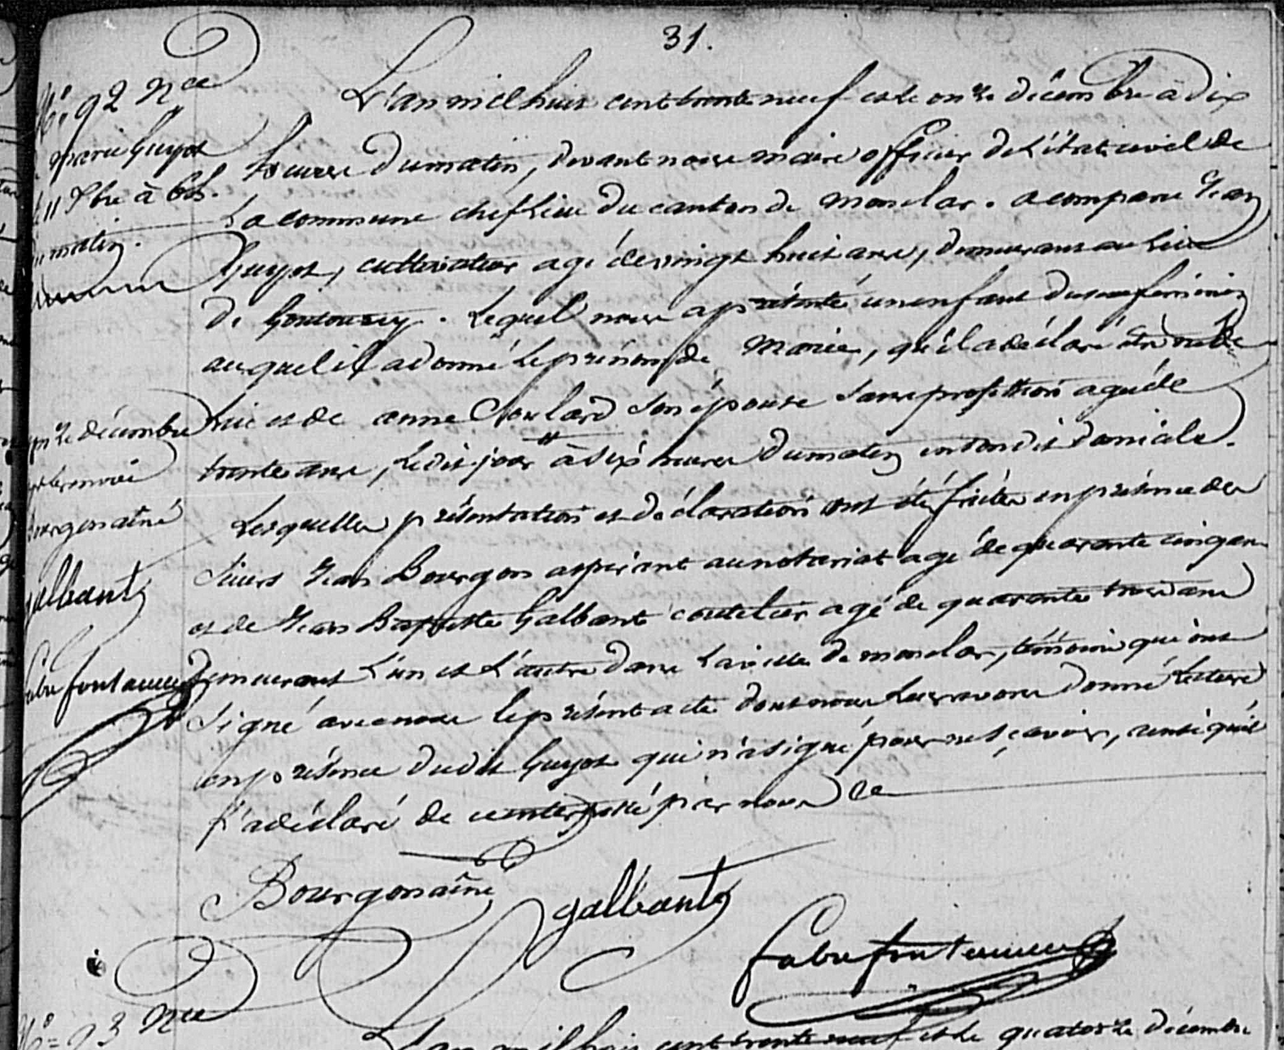 31.
N.° 92 Nce
marie Guyot
11 Xbre à 6h.
du matin.
L'an mil huit cent trente neuf et le onze décembre à dix
heures du matin, devant nous maire officier de L'état civil de
La commune chef Lieu du canton de monclar. a comparu Jean
Guyot, cultivateur agé de vingt huit ans, demeurant au Lieu
de . Lequel nous a présenté un enfant du sexe féminin
auquel il a donné le prénom de Marie, qu'il a déclaré être né de
lui et de anne Soulard son épouse sans profession agée de
trente ans, Ledit jour à six heures du matin
Lesquelles présentation et déclaration ont été faites en présence des
Sieurs Jean Bourgon aspirant au notariat agé de quarante cinq ans
et de Jean Baptiste Galbant coutelier agé de quarante trois ans
Demeurant L'un et L'autre dans La ville de monclar, témoins qui ont
Signé avec nous le présent acte dont nous Leur avons donné Lecture
en présence dudit Guyot qui n'a signé pour ne sçavoir, ainsi qu'il
l'a déclaré de ce interpellé par nous
onze décembre
renvoi
Bourgon aîné
galbant
Fabre fontanieu
Bourgon aîné
galbant
Fabre fontanieu
N.° 93 Nce
L'an mil huit cent trente neuf et le quatorze décembre